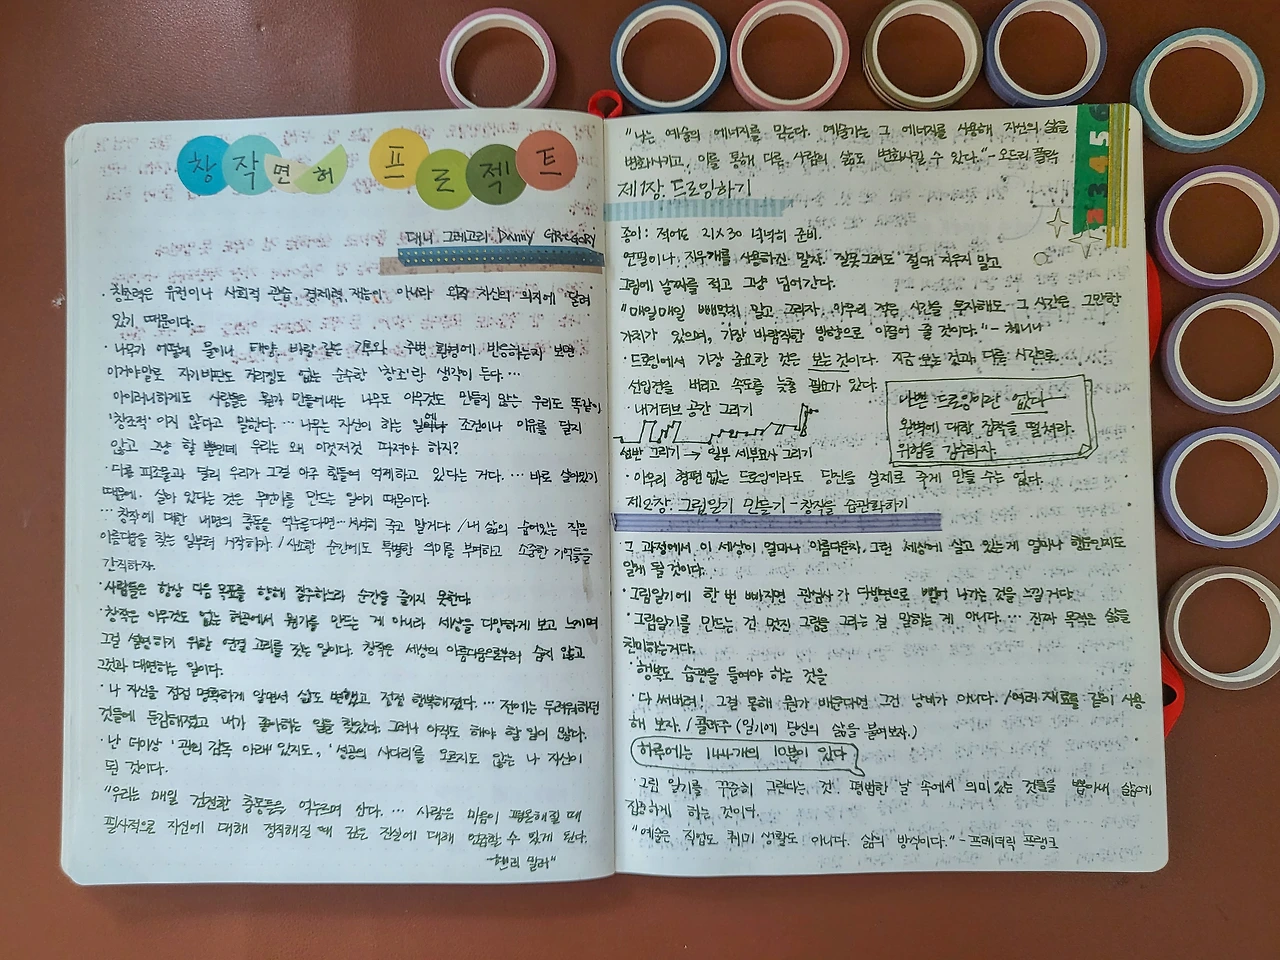 창작면허 프로젝트
대니 그레고리 DANNY GREGORY
· 창조력은 유전이나 사회적 관습, 경제력, 재능이 아니라 오직 자신의 의지에 달려
있기 때문이다.
· 나무가 어떻게 물이나 태양, 바람 같은 기후와 주변 환경에 반응하는지 보면
이거야말로 자기비판도 거리낌도 없는 순수한 '창조'란 생각이 든다...
아이러니하게도 사람들은 뭔가 만들어내는 나무도 아무것도 만들지 않는 우리도 똑같이
'창조적'이지 않다고 말한다... 나무는 자신이 하는 일에 조건이나 이유를 달지
않고 그냥 할 뿐인데 우리는 왜 이것저것 따져야 하지?
· 다른 피조물과 달리 우리가 그걸 아주 힘들여 억제하고 있다는 거다... 바로 살아있기
때문에. 살아 있다는 것은 무언가를 만드는 일이기 때문이다.
... 창작에 대한 내면의 충동을 억누른다면... 서서히 죽고 말거다. / 내 삶의 숨어있는 작은
아름다움을 찾는 일부터 시작하자. / 사소한 순간에도 특별한 의미를 부여하고 소중한 기억들을
간직하자.
· 사람들은 항상 다음 목표를 향해 질주하느라 순간을 즐기지 못한다.
· 창작은 아무것도 없는 허공에서 뭔가를 만드는 게 아니라 세상을 다양하게 보고 느끼며
그걸 설명하기 위한 연결 고리를 짓는 일이다. 창작은 세상의 아름다움으로부터 숨지 않고
그것과 대면하는 일이다.
· 나 자신을 점점 명확하게 알면서 삶도 변했고 점점 행복해졌다. ... 전에는 두려워하던
것들에 둔감해졌고 내가 좋아하는 일을 찾았다. 그러나 아직도 해야 할 일이 많다.
· 난 더이상 '관리 감독 아래' 있지도, '성공의 사다리'를 오르지도 않는 나 자신이
된 것이다.
"우리는 매일 건전한 충동들을 억누르며 산다. ... 사람은 마음이 평온해질 때
필사적으로 자신에 대해 정직해질 때 깊은 진실에 대해 언급할 수 있게 된다.
- 헨리 밀러"
"나는 예술의 에너지를 믿는다. 예술가는 그 에너지를 사용해 자신의 삶을
변화시키고, 이를 통해 다른 사람의 삶도 변화시킬 수 있다." - 오드리 플랙
제1장. 드로잉하기
종이: 적어도 21×30 넉넉히 준비.
연필이나, 지우개를 사용하진 말자. 잘못그려도 절대 지우지 말고
그림에 날짜를 적고 그냥 넘어간다.
"매일매일 빼먹지 말고 그리자. 아무리 적은 시간을 투자해도 그 시간은 그만한
가치가 있으며, 가장 바람직한 방향으로 이끌어 줄 것이다." - 체니니
· 드로잉에서 가장 중요한 것은 보는 것이다. 지금 보는 것과 다른 시각으로
선입견을 버리고 속도를 늦출 필요가 있다.
· 내거티브 공간 그리기
나쁜 드로잉이란 없다
완벽에 대한 집착을 떨쳐라.
위험을 감수하자.
설반 그리기 → 일부 세부묘사 그리기
· 아무리 형편 없는 드로잉이라도 당신을 실제로 죽게 만들 수는 없다.
제2장: 그림일기 만들기 - 창작을 습관화하기
그 과정에서 이 세상이 얼마나 아름다운지, 그런 세상에 살고 있는게 얼마나 행운인지도
알게 될 것이다.
· 그림일기에 한 번 빠지면 관심사가 다방면으로 뻗어 나가는 것을 느낄거다.
· 그림일기를 만드는 건 멋진 그림을 그리는 걸 말하는 게 아니다. ... 진짜 목적은 삶을
찬미하는거다.
· 행복도 습관을 들여야 하는 것을
· 다 써버려! 그걸 통해 뭔가 배운다면 그건 낭비가 아니다. / 여러 재료를 같이 사용
해 보자. / 콜라주 (일기에 당신의 삶을 붙여보자.)
하루에는 144개의 10분이 있다
· 그림 일기를 꾸준히 그린다는 것 평범한 날 속에서 의미있는 것들을 뽑아내 삶에
집중하게 하는 것이다.
"예술은 직업도 취미 생활도 아니다. 삶의 방식이다." - 프레더릭 프랭크
2 3 4 5 6